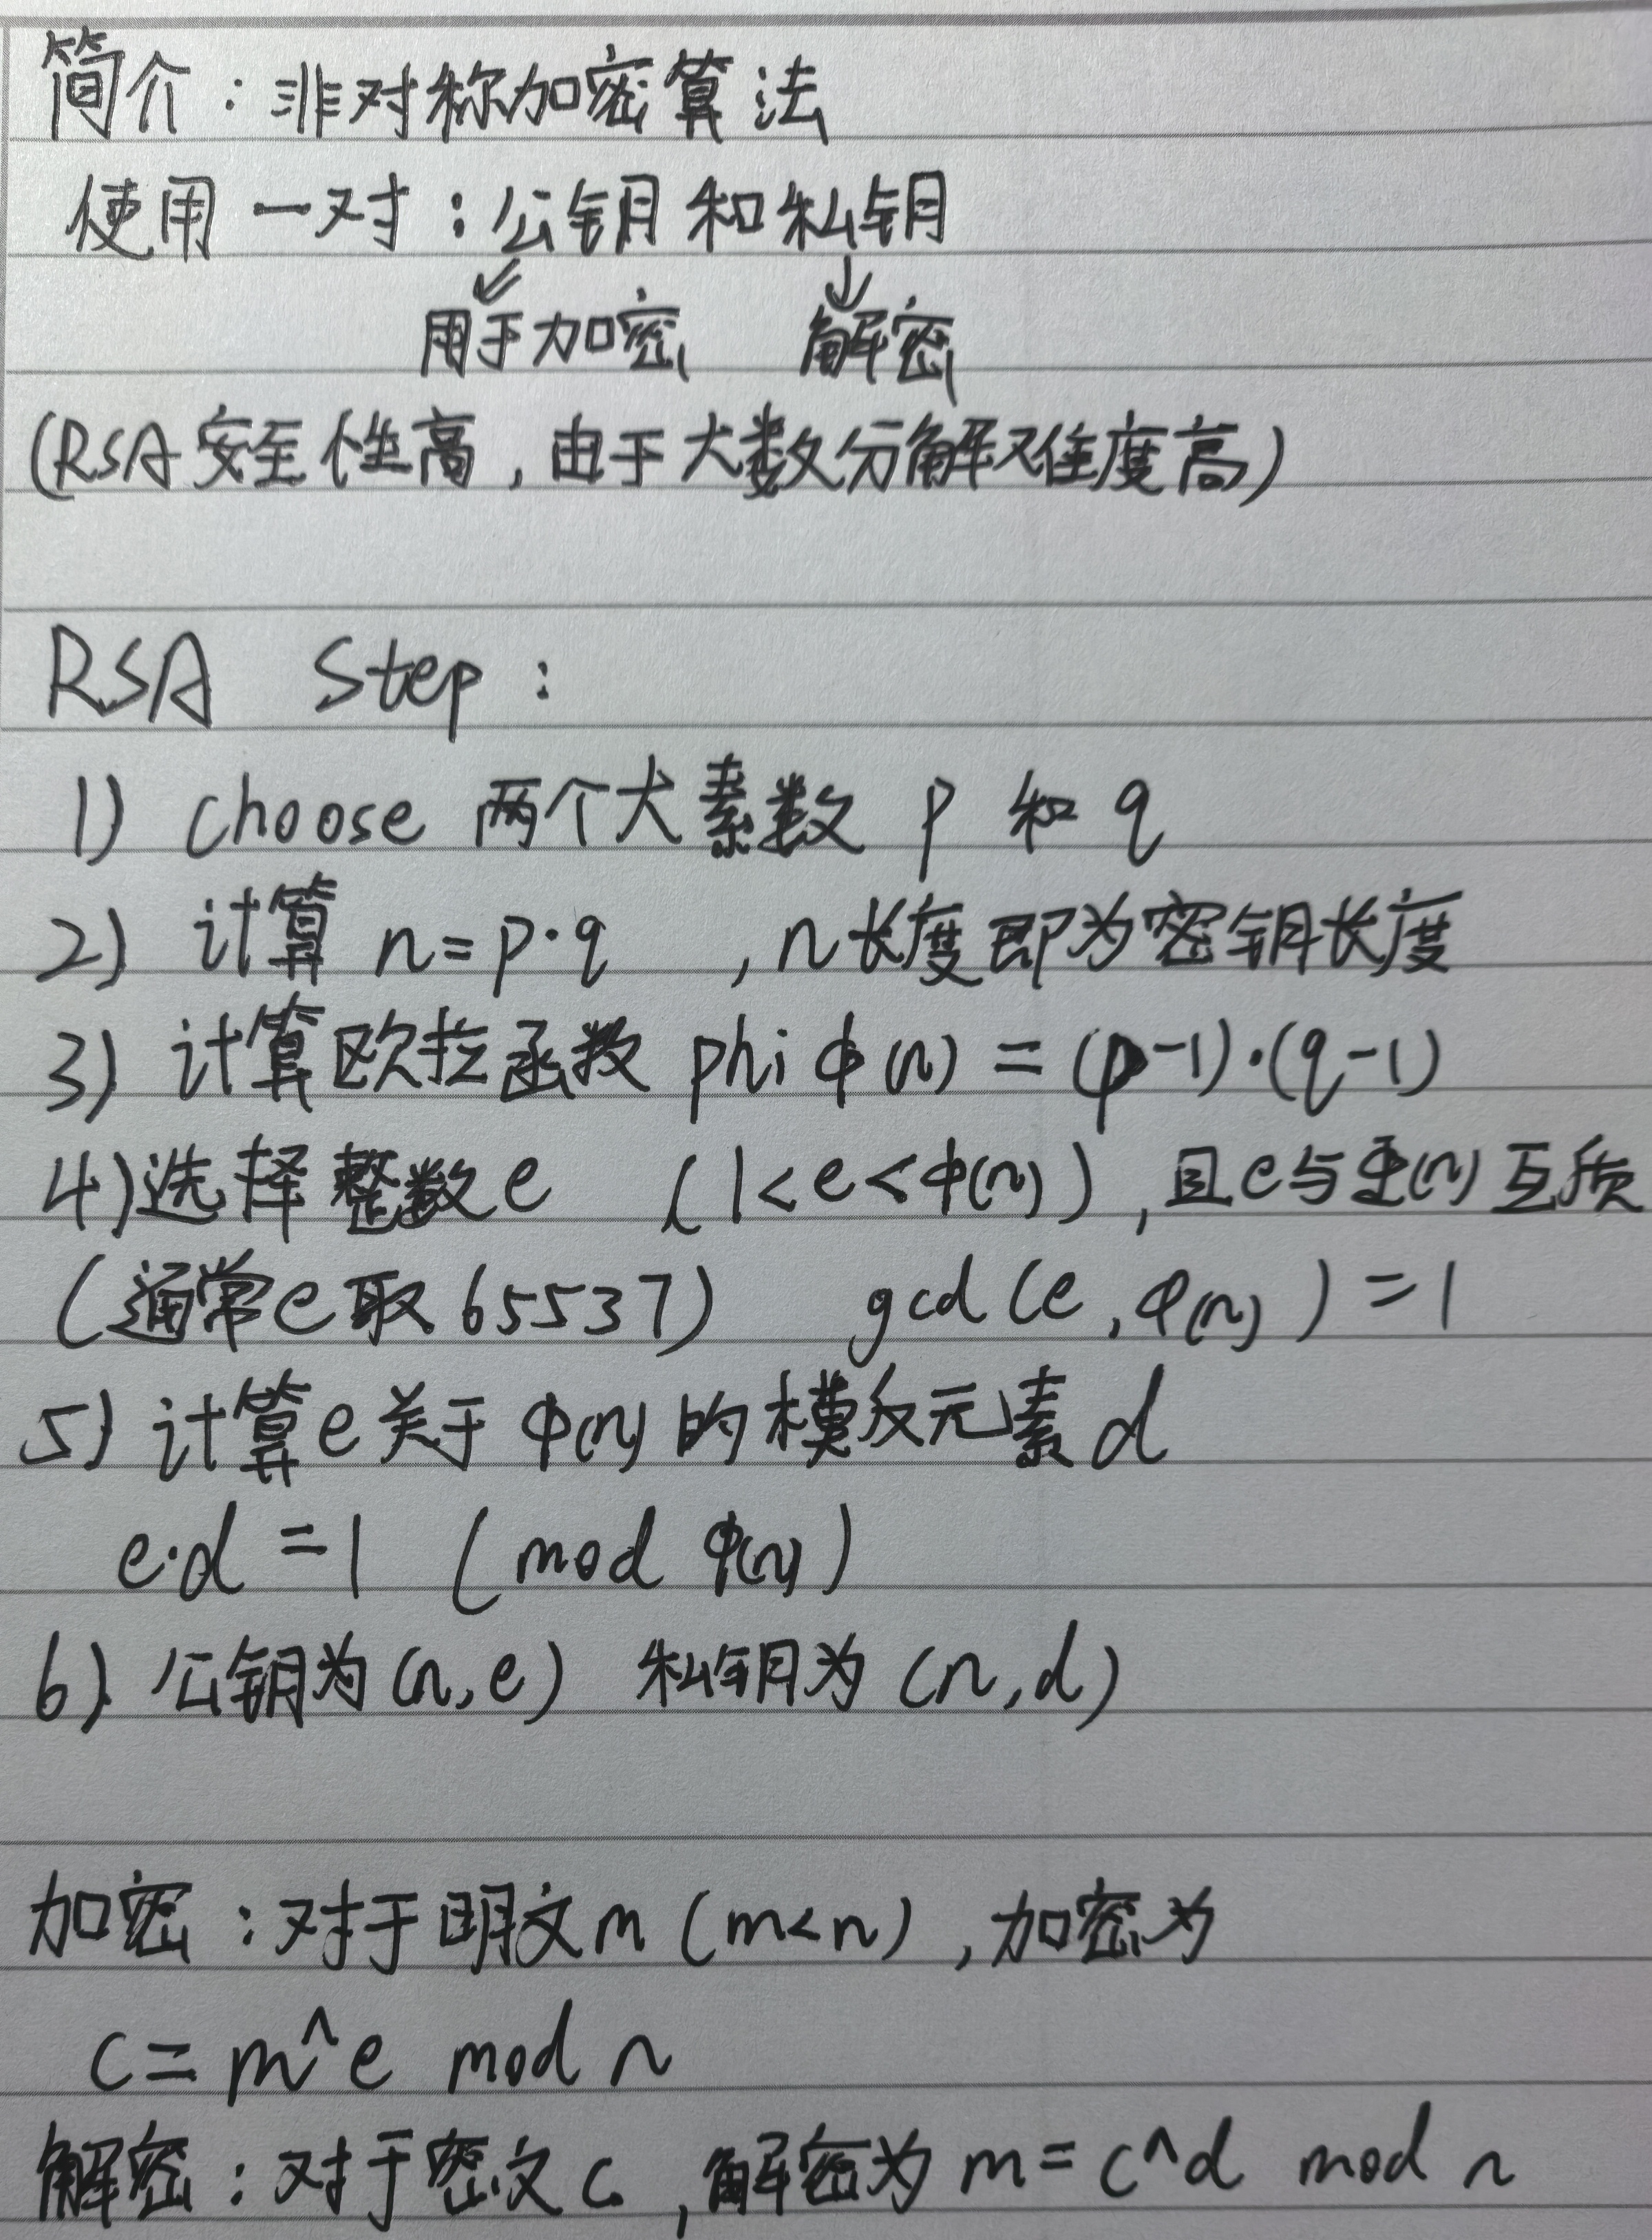 简介：非对称加密算法
使用一对：公钥和私钥
用于加密 解密
(RSA安全性高，由于大数分解难度高)
RSA Step：
1) choose 两个大素数 p 和 q
2) 计算 n=p·q ，n长度即为密钥长度
3) 计算欧拉函数 phi φ(n) = (p-1)·(q-1)
4)选择整数e (1<e<φ(n))，且e与φ(n)互质
(通常e取65537) gcd(e,φ(n))=1
5) 计算e关于φ(n)的模反元素d
e·d=1 (mod φ(n))
6) 公钥为(n,e) 私钥为(n,d)
加密：对于明文m(m<n)，加密为
c=m^e mod n
解密：对于密文c，解密为m=c^d mod n